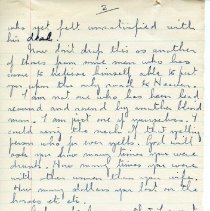 3
who yet felt unsatisfied with
his deal.
Now don't drop this as another
of those from some men who has
come to believe himself able to put
you upon the only road to Heaven.
I am not one who has been lead
around and around by another blind
man. I am just one of yourselves. I
could wring the neck of that yelling
person who for ever yells. God will
ask you how many times you were
drunk. How many times you were
with the women than your wife.
How many dollars you bet on the
horses etc etc.